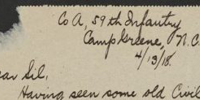 Co A, 59th Infantry
Camp Greene, N.C.
4/13/18.
ear Sil,
Having seen some old Civil